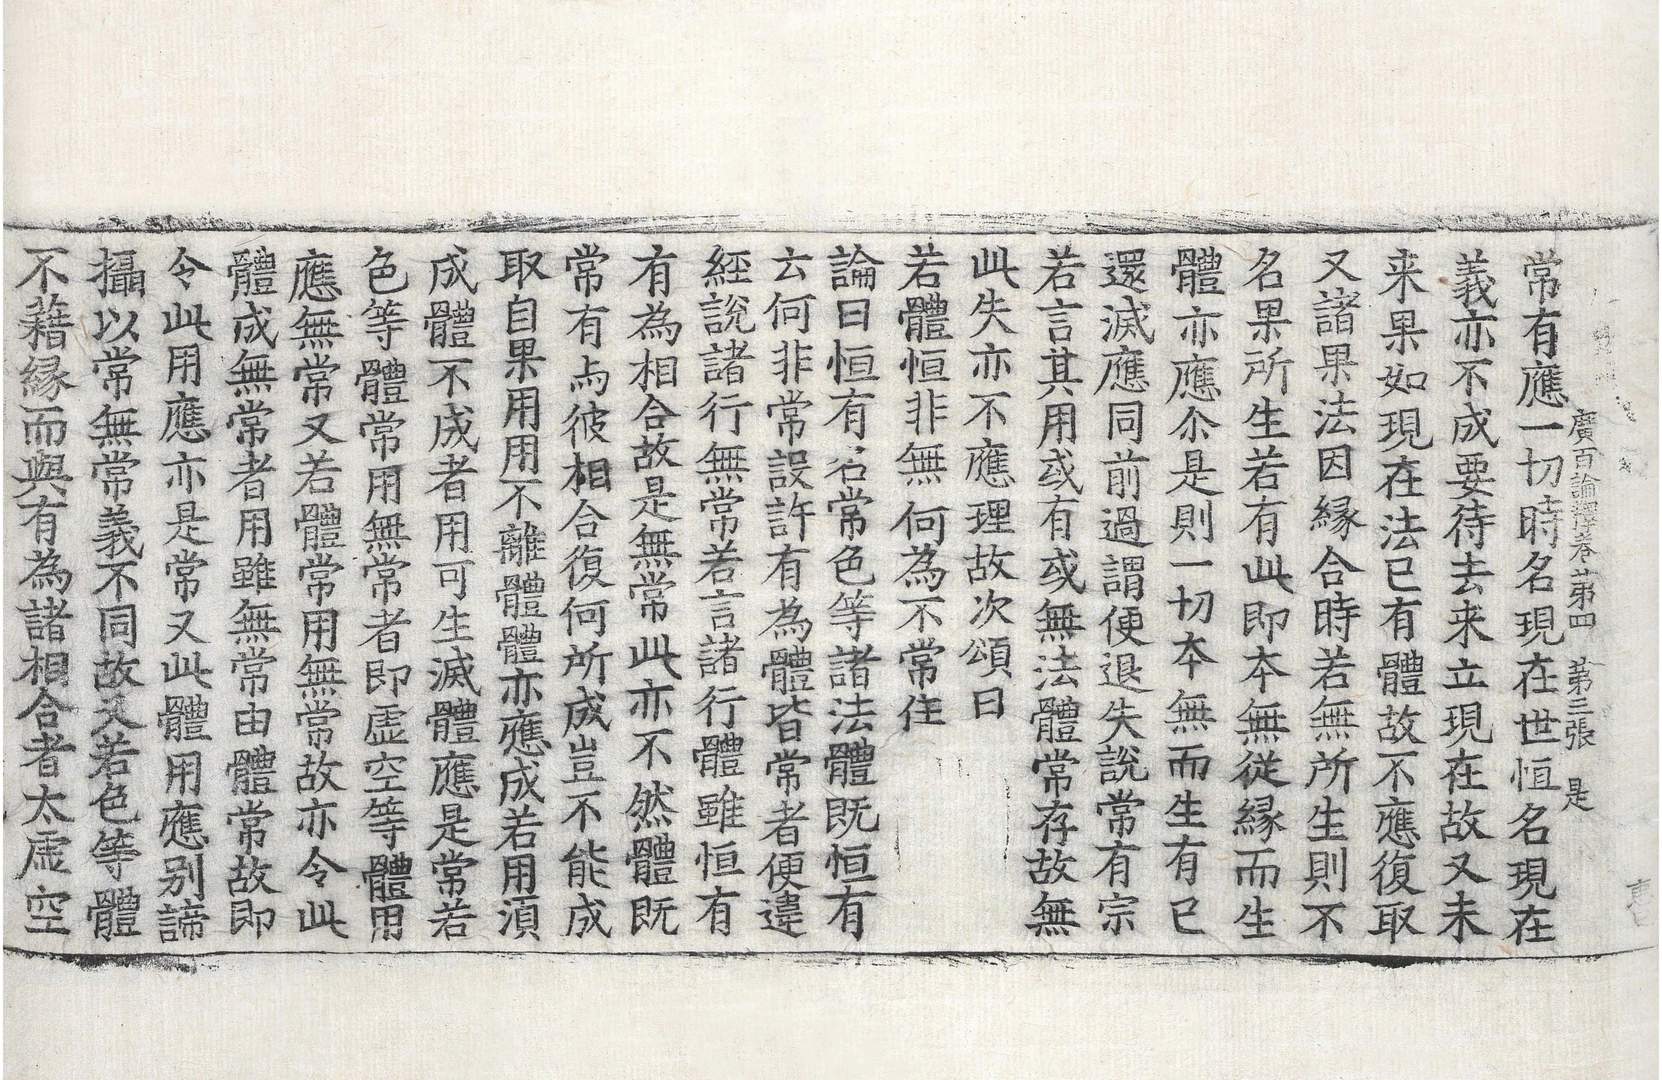 廣百論釋卷第四 第三張 是
常有應一切時名現在世恒名現在
義亦不成要待去来立現在故又未
来果如現在法已有體故不應復取
又諸果法因緣合時若無所生則不
名果所生若有此即夲無從緣而生
體亦應尒是則一切夲無而生有已
還滅應同前過謂便退失說常有宗
若言其用或有或無法體常存故無
此失亦不應理故次頌曰
若體恒非無 何為不常住
論曰恒有名常色等諸法體既恒有
云何非常設許有為體皆常者便違
經說諸行無常若言諸行體雖恒有
有為相合故是無常此亦不然體既
常有与彼相合復何所成豈不能成
取自果用用不離體體亦應成若用湏
成體不成者用可生滅體應是常若
色等體常用無常者即虛空等體用
應無常又若體常用無常故亦令此
體成無常者用雖無常由體常故即
令此用應亦是常又此體用應別諦
攝以常無常義不同故又若色等體
不藉緣而與有為諸相合者太虛空